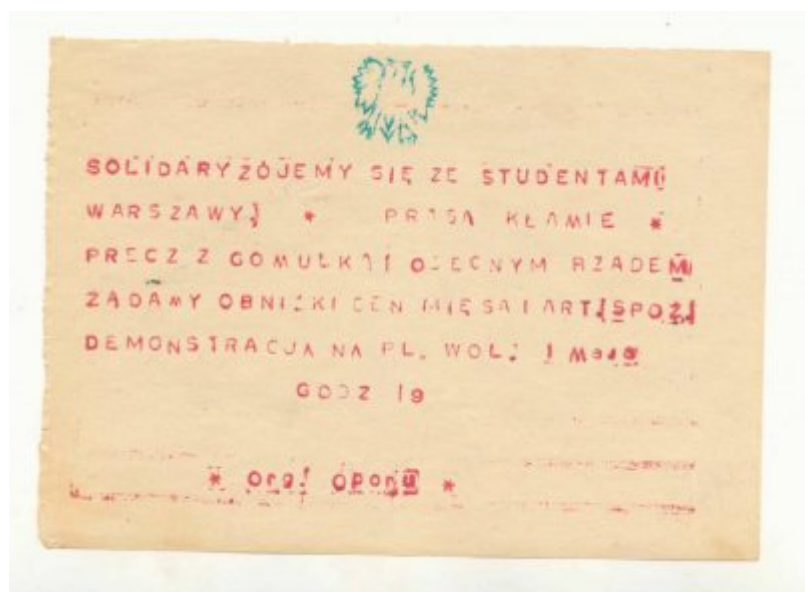 SOLIDARYZÓJEMY SIĘ ZE STUDENTAMI
WARSZAWY, * PRASA KŁAMIE *
PRECZ Z GOMUŁKĄ I OBECNYM RZĄDEM
ŻĄDAMY OBNIŻKI CEN MIĘSA I ART. SPOŻ.
DEMONSTRACJA NA PL. WOL. 1 Maja
GODZ 19
* org. oporu *